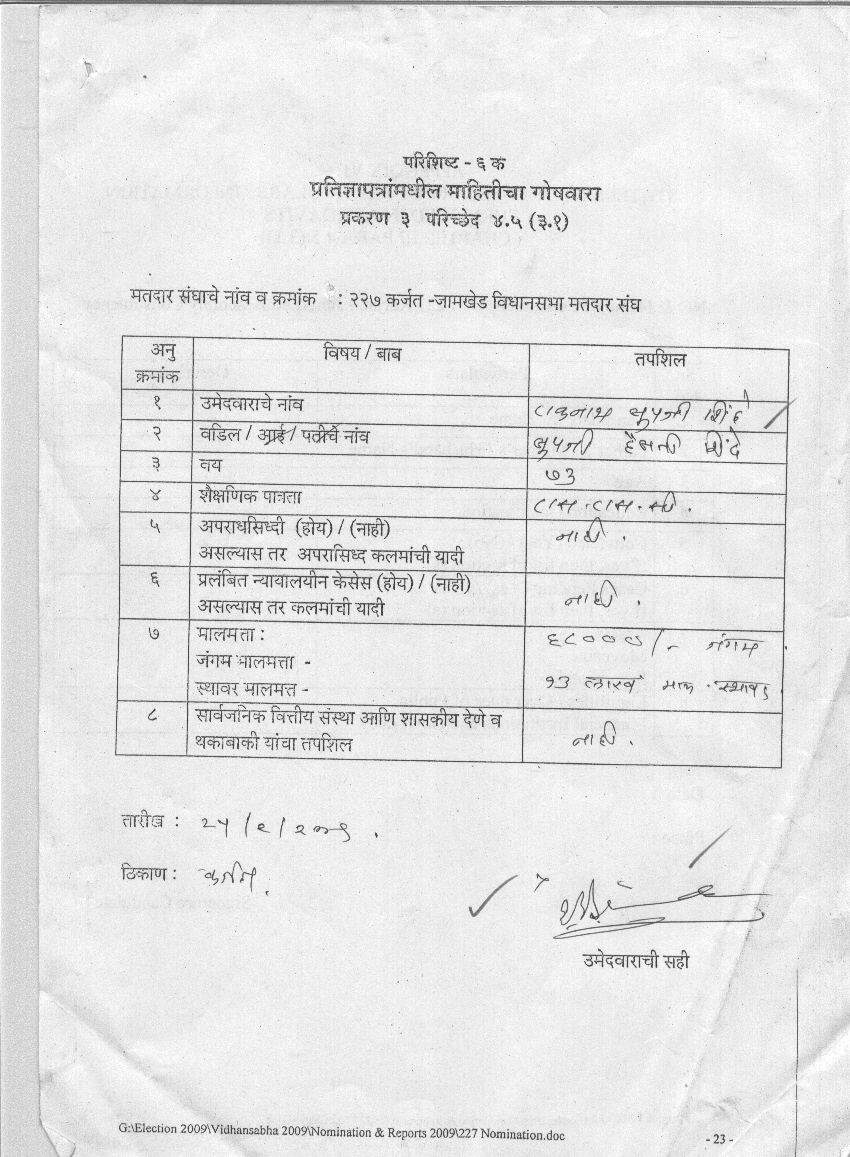 परिशिष्ट - ६ क
प्रतिज्ञापत्रांमधील माहितीचा गोषवारा
प्रकरण ३ परिच्छेद ४.५ (३.१)
मतदार संघाचे नांव व क्रमांक : २२७ कर्जत -जामखेड विधानसभा मतदार संघ
अनु क्रमांक विषय / बाब तपशिल
१ उमेदवाराचे नांव शिंदे
२ वडिल / आई / पतीचे नांव शिंदे
३ वय ७३
४ शैक्षणिक पात्रता एस.एस.सी.
५ अपराधसिध्दी (होय) / (नाही) नाही.
असल्यास तर अपरासिध्द कलमांची यादी
६ प्रलंबित न्यायालयीन केसेस (होय) / (नाही) नाही.
असल्यास तर कलमांची यादी
७ मालमत्ता : ६८०००/- जंगम
जंगम मालमत्ता -
स्थावर मालमत्त - १३ लाख स्थावर
८ सार्वजनिक वित्तीय संस्था आणि शासकीय देणे व
थकाबाकी यांचा तपशिल नाही.
तारीख : २५/९/२००९.
ठिकाण : कर्जत.
उमेदवाराची सही
G:\Election 2009\Vidhansabha 2009\Nomination & Reports 2009\227 Nomination.doc
- 23 -